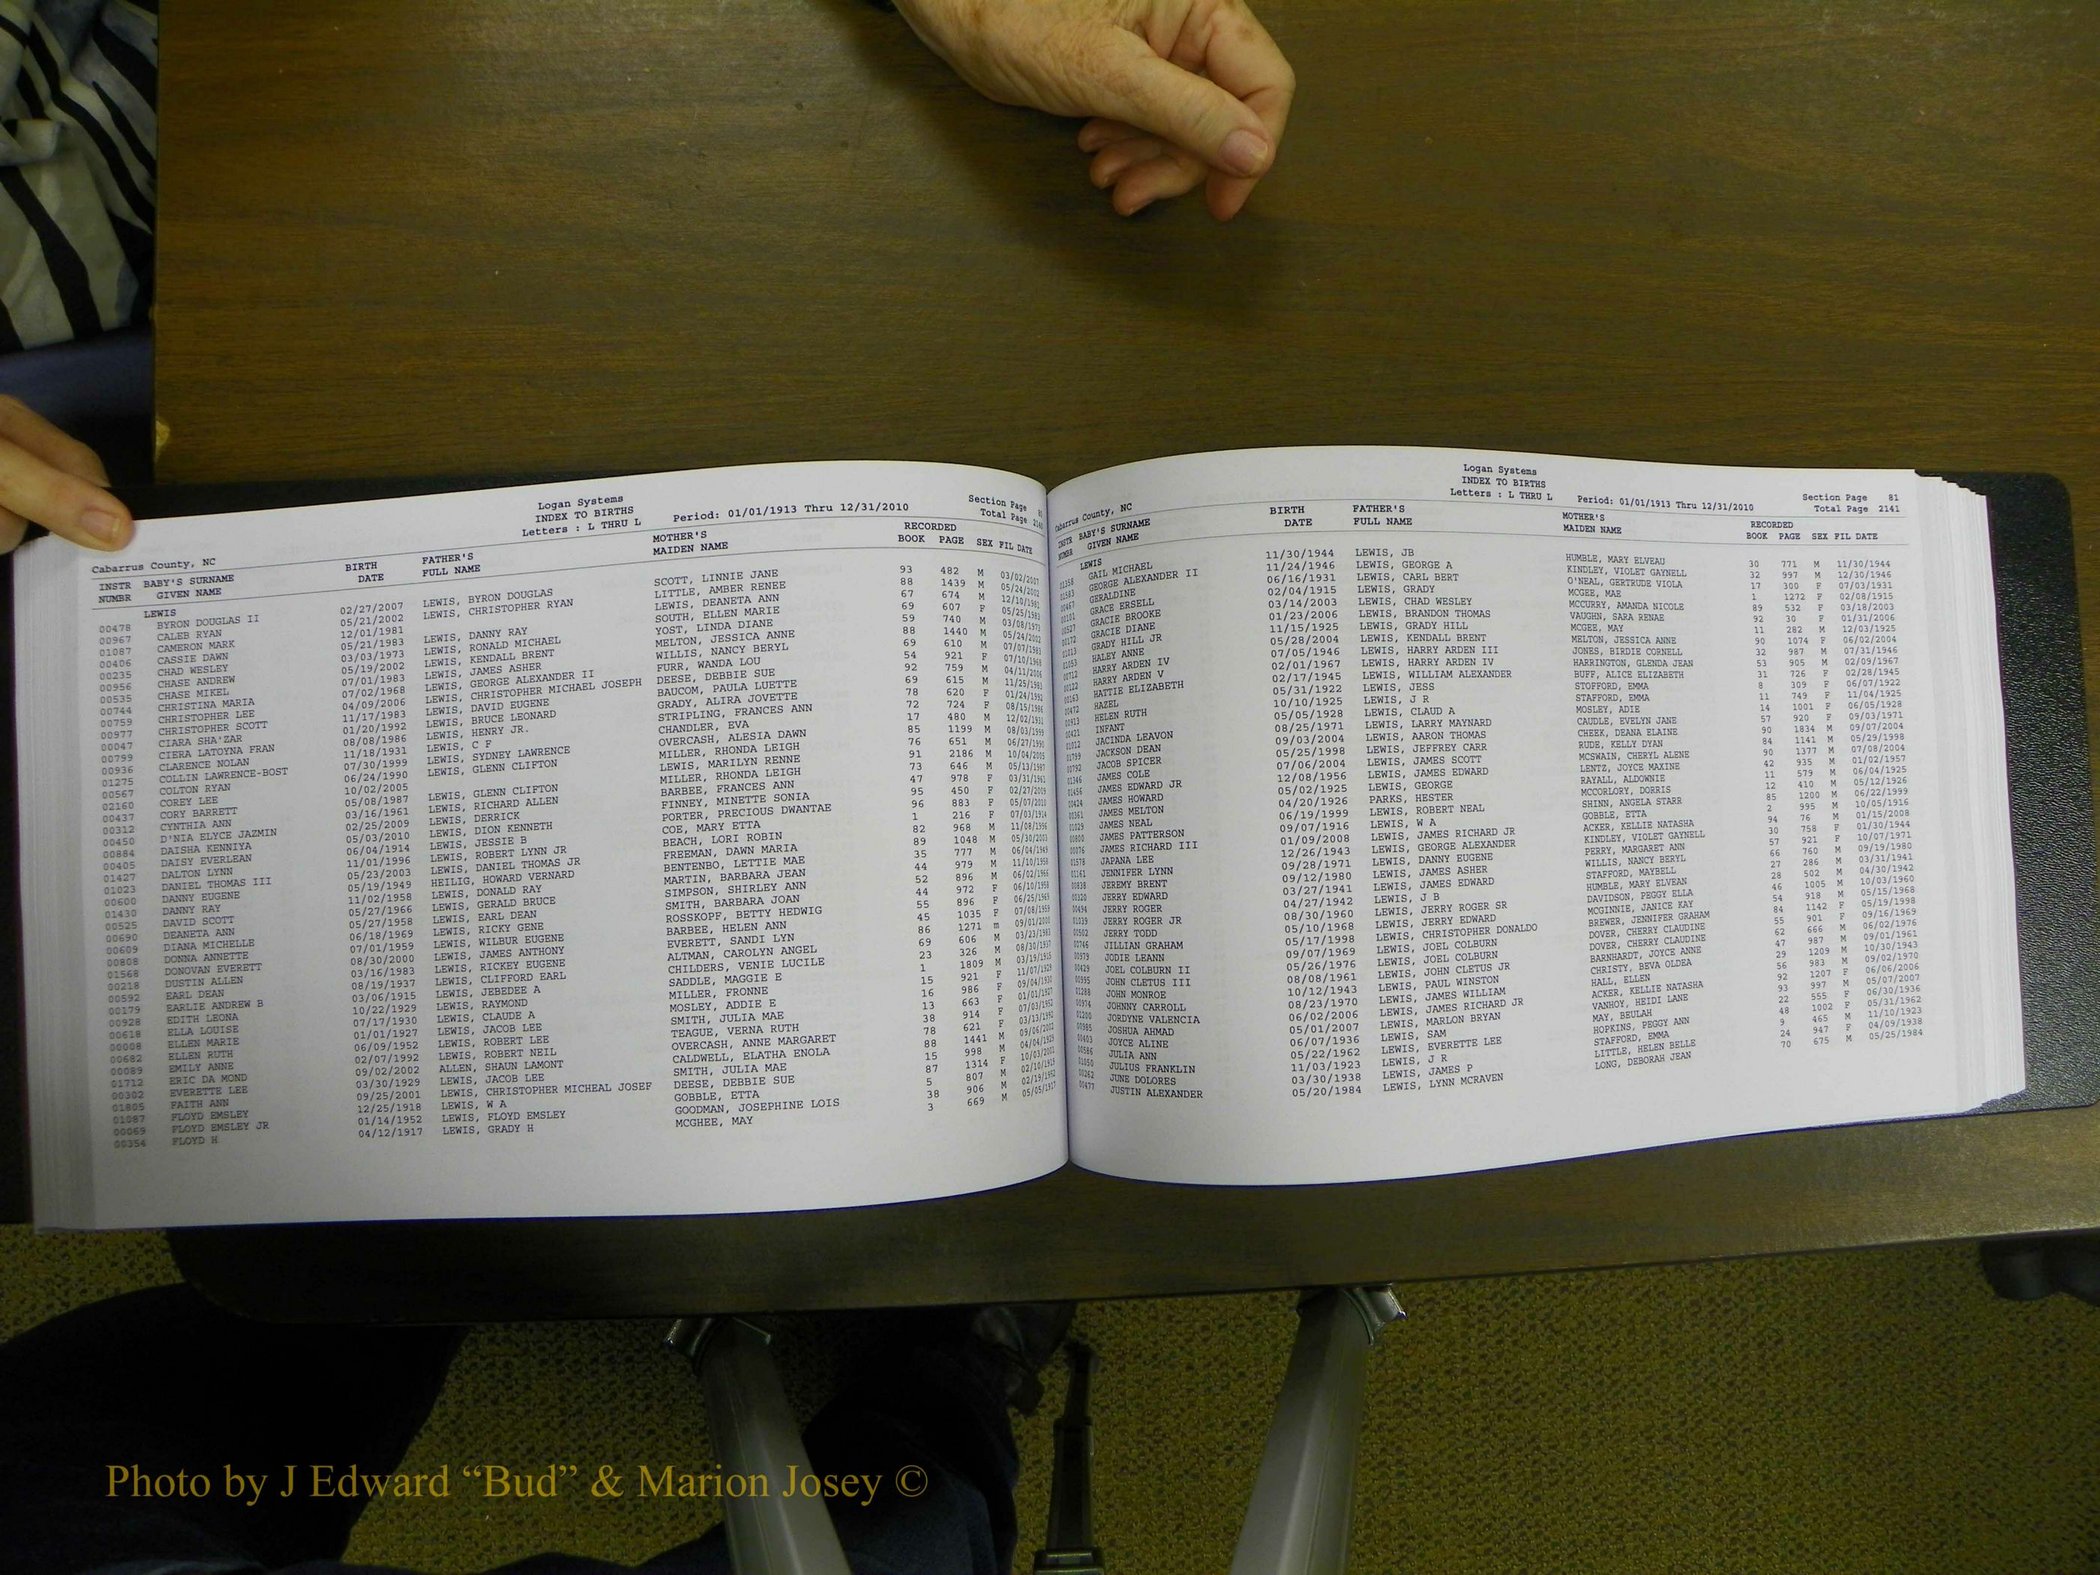 Logan Systems
INDEX TO BIRTHS
Letters : L THRU L Period: 01/01/1913 Thru 12/31/2010
Section Page
Total Page
Cabarrus County, NC
INSTR BABY'S SURNAME BIRTH FATHER'S MOTHER'S RECORDED
NUMBR GIVEN NAME DATE FULL NAME MAIDEN NAME BOOK PAGE SEX FIL DATE
LEWIS
00478 BYRON DOUGLAS II 02/27/2007 LEWIS, BYRON DOUGLAS SCOTT, LINNIE JANE 93 482 M 03/02/2007
00967 CALEB RYAN 05/21/2002 LEWIS, CHRISTOPHER RYAN LITTLE, AMBER RENEE 88 1439 M 05/24/2002
01087 CAMERON MARK 12/01/1981 LEWIS, DEANETA ANN 67 674 M 12/10/1981
00406 CASSIE DAWN 05/21/1983 LEWIS, DANNY RAY SOUTH, ELLEN MARIE 69 607 F 05/25/1983
00235 CHAD WESLEY 03/03/1973 LEWIS, RONALD MICHAEL YOST, LINDA DIANE 59 740 M 03/08/1973
00956 CHASE ANDREW 05/19/2002 LEWIS, KENDALL BRENT MELTON, JESSICA ANNE 88 1440 M 05/24/2002
00535 CHASE MIKEL 07/01/1983 LEWIS, JAMES ASHER WILLIS, NANCY BERYL 69 610 M 07/07/1983
00744 CHRISTINA MARIA 07/02/1968 LEWIS, GEORGE ALEXANDER II FURR, WANDA LOU 54 921 F 07/10/1968
00759 CHRISTOPHER LEE 04/09/2006 LEWIS, CHRISTOPHER MICHAEL JOSEPH DEESE, DEBBIE SUE 92 759 M 04/11/2006
00977 CHRISTOPHER SCOTT 11/17/1983 LEWIS, DAVID EUGENE BAUCOM, PAULA LUETTE 69 615 M 11/25/1983
00047 CIARA SHA'ZAR 01/20/1992 LEWIS, BRUCE LEONARD GRADY, ALIRA JOVETTE 78 620 F 01/24/1992
00799 CIERA LATOYNA FRAN 08/08/1986 LEWIS, HENRY JR. STRIPLING, FRANCES ANN 72 724 F 08/15/1986
00936 CLARENCE NOLAN 11/18/1931 LEWIS, C F CHANDLER, EVA 17 480 M 12/02/1931
01275 COLLIN LAWRENCE-BOST 07/30/1999 LEWIS, SYDNEY LAWRENCE OVERCASH, ALESIA DAWN 85 1199 M 08/03/1999
00567 COLTON RYAN 06/24/1990 LEWIS, GLENN CLIFTON MILLER, RHONDA LEIGH 76 651 M 06/27/1990
02160 COREY LEE 10/02/2005 LEWIS, MARILYN RENNE 91 2186 M 10/04/2005
00437 CORY BARRETT 05/08/1987 LEWIS, GLENN CLIFTON MILLER, RHONDA LEIGH 73 646 M 05/13/1987
00312 CYNTHIA ANN 03/16/1961 LEWIS, RICHARD ALLEN BARBEE, FRANCES ANN 47 978 F 03/31/1961
00450 D'NIA ELYCE JAZMIN 02/25/2009 LEWIS, DERRICK FINNEY, MINETTE SONIA 95 450 F 02/27/2009
00884 DAISHA KENNIYA 05/03/2010 LEWIS, DION KENNETH PORTER, PRECIOUS DWANTAE 96 883 F 05/07/2010
00405 DAISY EVERLEAN 06/04/1914 LEWIS, JESSIE B COE, MARY ETTA 1 216 F 07/03/1914
01427 DALTON LYNN 11/01/1996 LEWIS, ROBERT LYNN JR BEACH, LORI ROBIN 82 968 M 11/08/1996
01023 DANIEL THOMAS III 05/23/2003 LEWIS, DANIEL THOMAS JR FREEMAN, DAWN MARIA 89 1048 M 05/30/2003
00600 DANNY EUGENE 05/19/1949 HEILIG, HOWARD VERNARD BENTENBO, LETTIE MAE 35 777 M 06/04/1949
01430 DANNY RAY 11/02/1958 LEWIS, DONALD RAY MARTIN, BARBARA JEAN 44 979 M 11/10/1958
00525 DAVID SCOTT 05/27/1966 LEWIS, GERALD BRUCE SIMPSON, SHIRLEY ANN 52 896 M 06/02/1966
00690 DEANETA ANN 05/27/1958 LEWIS, EARL DEAN SMITH, BARBARA JOAN 44 972 F 06/10/1958
00609 DIANA MICHELLE 06/18/1969 LEWIS, RICKY GENE ROSSKOPF, BETTY HEDWIG 55 896 F 06/25/1969
00808 DONNA ANNETTE 07/01/1959 LEWIS, WILBUR EUGENE BARBEE, HELEN ANN 45 1035 F 07/08/1959
01568 DONOVAN EVERETT 08/30/2000 LEWIS, JAMES ANTHONY EVERETT, SANDI LYN 86 1271 m 09/01/2000
00218 DUSTIN ALLEN 03/16/1983 LEWIS, RICKEY EUGENE ALTMAN, CAROLYN ANGEL 69 606 M 03/23/1983
00592 EARL DEAN 08/19/1937 LEWIS, CLIFFORD EARL CHILDERS, VENIE LUCILE 23 326 M 08/30/1937
00179 EARLIE ANDREW B 03/06/1915 LEWIS, JEBEDEE A SADDLE, MAGGIE E 1 1809 M 03/19/1915
00928 EDITH LEONA 10/22/1929 LEWIS, RAYMOND MILLER, FRONNE 15 921 F 11/07/1929
00618 ELLA LOUISE 07/17/1930 LEWIS, CLAUDE A MOSLEY, ADDIE E 16 986 F 09/04/1930
00008 ELLEN MARIE 01/01/1927 LEWIS, JACOB LEE SMITH, JULIA MAE 13 663 F 01/01/1927
00682 ELLEN RUTH 06/09/1952 LEWIS, ROBERT LEE TEAGUE, VERNA RUTH 38 914 F 07/03/1952
00089 EMILY ANNE 02/07/1992 LEWIS, ROBERT NEIL OVERCASH, ANNE MARGARET 78 621 F 03/13/1992
01712 ERIC DA MOND 09/02/2002 ALLEN, SHAUN LAMONT CALDWELL, ELATHA ENOLA 88 1441 M 09/06/2002
00302 EVERETTE LEE 03/30/1929 LEWIS, JACOB LEE SMITH, JULIA MAE 15 998 M 04/04/1929
01805 FAITH ANN 09/25/2001 LEWIS, CHRISTOPHER MICHEAL JOSEF DEESE, DEBBIE SUE 87 1314 F 10/03/2001
01087 FLOYD EMSLEY 12/25/1918 LEWIS, W A GOBBLE, ETTA 5 807 M 02/10/1919
00069 FLOYD EMSLEY JR 01/14/1952 LEWIS, FLOYD EMSLEY GOODMAN, JOSEPHINE LOIS 38 906 M 02/19/1952
00354 FLOYD H 04/12/1917 LEWIS, GRADY H MCGHEE, MAY 3 669 M 05/05/1917
Logan Systems
INDEX TO BIRTHS
Letters : L THRU L Period: 01/01/1913 Thru 12/31/2010
Section Page 81
Total Page 2141
Cabarrus County, NC
INSTR BABY'S SURNAME BIRTH FATHER'S MOTHER'S RECORDED
NUMBR GIVEN NAME DATE FULL NAME MAIDEN NAME BOOK PAGE SEX FIL DATE
LEWIS
01358 GAIL MICHAEL 11/30/1944 LEWIS, JB HUMBLE, MARY ELVEAU 30 771 M 11/30/1944
01583 GEORGE ALEXANDER II 11/24/1946 LEWIS, GEORGE A KINDLEY, VIOLET GAYNELL 32 997 M 12/30/1946
00467 GERALDINE 06/16/1931 LEWIS, CARL BERT O'NEAL, GERTRUDE VIOLA 17 300 F 07/03/1931
00101 GRACE ERSELL 02/04/1915 LEWIS, GRADY MCGEE, MAE 1 1272 F 02/08/1915
00527 GRACIE BROOKE 03/14/2003 LEWIS, CHAD WESLEY MCCURRY, AMANDA NICOLE 89 532 F 03/18/2003
00172 GRACIE DIANE 01/23/2006 LEWIS, BRANDON THOMAS VAUGHN, SARA RENAE 92 30 F 01/31/2006
01013 GRADY HILL JR 11/15/1925 LEWIS, GRADY HILL MCGEE, MAY 11 282 M 12/03/1925
01053 HALEY ANNE 05/28/2004 LEWIS, KENDALL BRENT MELTON, JESSICA ANNE 90 1074 F 06/02/2004
00712 HARRY ARDEN IV 07/05/1946 LEWIS, HARRY ARDEN III JONES, BIRDIE CORNELL 32 987 M 07/31/1946
00122 HARRY ARDEN V 02/01/1967 LEWIS, HARRY ARDEN IV HARRINGTON, GLENDA JEAN 53 905 M 02/09/1967
00163 HATTIE ELIZABETH 02/17/1945 LEWIS, WILLIAM ALEXANDER BUFF, ALICE ELIZABETH 31 726 F 02/28/1945
00472 HAZEL 05/31/1922 LEWIS, JESS STOFFORD, EMMA 8 309 F 06/07/1922
00913 HELEN RUTH 10/10/1925 LEWIS, J R STAFFORD, EMMA 11 749 F 11/04/1925
00421 INFANT 05/05/1928 LEWIS, CLAUD A MOSLEY, ADIE 14 1001 F 06/05/1928
01012 JACINDA LEAVON 08/25/1971 LEWIS, LARRY MAYNARD CAUDLE, EVELYN JANE 57 920 F 09/03/1971
01799 JACKSON DEAN 09/03/2004 LEWIS, AARON THOMAS CHEEK, DEANA ELAINE 90 1834 M 09/07/2004
00792 JACOB SPICER 05/25/1998 LEWIS, JEFFREY CARR RUDE, KELLY DYAN 84 1141 M 05/29/1998
01346 JAMES COLE 07/06/2004 LEWIS, JAMES SCOTT MCSWAIN, CHERYL ALENE 90 1377 M 07/08/2004
01456 JAMES EDWARD JR 12/08/1956 LEWIS, JAMES EDWARD LENTZ, JOYCE MAXINE 42 935 M 01/02/1957
00424 JAMES HOWARD 05/02/1925 LEWIS, GEORGE RAYALL, ALDOWNIE 11 579 M 06/04/1925
00361 JAMES MELTON 04/20/1926 PARKS, HESTER MCCORLORY, DORRIS 12 410 M 05/12/1926
01029 JAMES NEAL 06/19/1999 LEWIS, ROBERT NEAL SHINN, ANGELA STARR 85 1200 M 06/22/1999
00800 JAMES PATTERSON 09/07/1916 LEWIS, W A GOBBLE, ETTA 2 995 M 10/05/1916
00076 JAMES RICHARD III 01/09/2008 LEWIS, JAMES RICHARD JR ACKER, KELLIE NATASHA 94 76 M 01/15/2008
01578 JAPANA LEE 12/26/1943 LEWIS, GEORGE ALEXANDER KINDLEY, VIOLET GAYNELL 30 758 F 01/30/1944
01161 JENNIFER LYNN 09/28/1971 LEWIS, DANNY EUGENE PERRY, MARGARET ANN 57 921 F 10/07/1971
00838 JEREMY BRENT 09/12/1980 LEWIS, JAMES ASHER WILLIS, NANCY BERYL 66 760 M 09/19/1980
00320 JERRY EDWARD 03/27/1941 LEWIS, JAMES EDWARD STAFFORD, MAYBELL 27 286 M 03/31/1941
00494 JERRY ROGER 04/27/1942 LEWIS, J B HUMBLE, MARY ELVEAN 28 502 M 04/30/1942
01039 JERRY ROGER JR 08/30/1960 LEWIS, JERRY ROGER SR DAVIDSON, PEGGY ELLA 46 1005 M 10/03/1960
00502 JERRY TODD 05/10/1968 LEWIS, JERRY EDWARD MCGINNIE, JANICE KAY 54 918 M 05/15/1968
00746 JILLIAN GRAHAM 05/17/1998 LEWIS, CHRISTOPHER DONALDO BREWER, JENNIFER GRAHAM 84 1142 F 05/19/1998
00979 JODIE LEANN 09/07/1969 LEWIS, JOEL COLBURN DOVER, CHERRY CLAUDINE 55 901 F 09/16/1969
00429 JOEL COLBURN II 05/26/1976 LEWIS, JOEL COLBURN DOVER, CHERRY CLAUDINE 62 666 M 06/02/1976
00995 JOHN CLETUS III 08/08/1961 LEWIS, JOHN CLETUS JR BARNHARDT, JOYCE ANNE 47 987 M 09/01/1961
01288 JOHN MONROE 10/12/1943 LEWIS, PAUL WINSTON CHRISTY, BEVA OLDEA 29 1209 M 10/30/1943
00974 JOHNNY CARROLL 08/23/1970 LEWIS, JAMES WILLIAM HALL, ELLEN 56 983 M 09/02/1970
01200 JORDYNE VALENCIA 06/02/2006 LEWIS, JAMES RICHARD JR ACKER, KELLIE NATASHA 92 1207 F 06/06/2006
00985 JOSHUA AHMAD 05/01/2007 LEWIS, MARLON BRYAN VANHOY, HEIDI LANE 93 997 M 05/07/2007
00403 JOYCE ALINE 06/07/1936 LEWIS, SAM MAY, BEULAH 22 555 F 06/30/1936
00586 JULIA ANN 05/22/1962 LEWIS, EVERETTE LEE HOPKINS, PEGGY ANN 48 1002 F 05/31/1962
01050 JULIUS FRANKLIN 11/03/1923 LEWIS, J R STAFFORD, EMMA 9 465 M 11/10/1923
00262 JUNE DOLORES 03/30/1938 LEWIS, JAMES P LITTLE, HELEN BELLE 24 947 F 04/09/1938
00477 JUSTIN ALEXANDER 05/20/1984 LEWIS, LYNN MCRAVEN LONG, DEBORAH JEAN 70 675 M 05/25/1984
Photo by J Edward “Bud” & Marion Josey ©